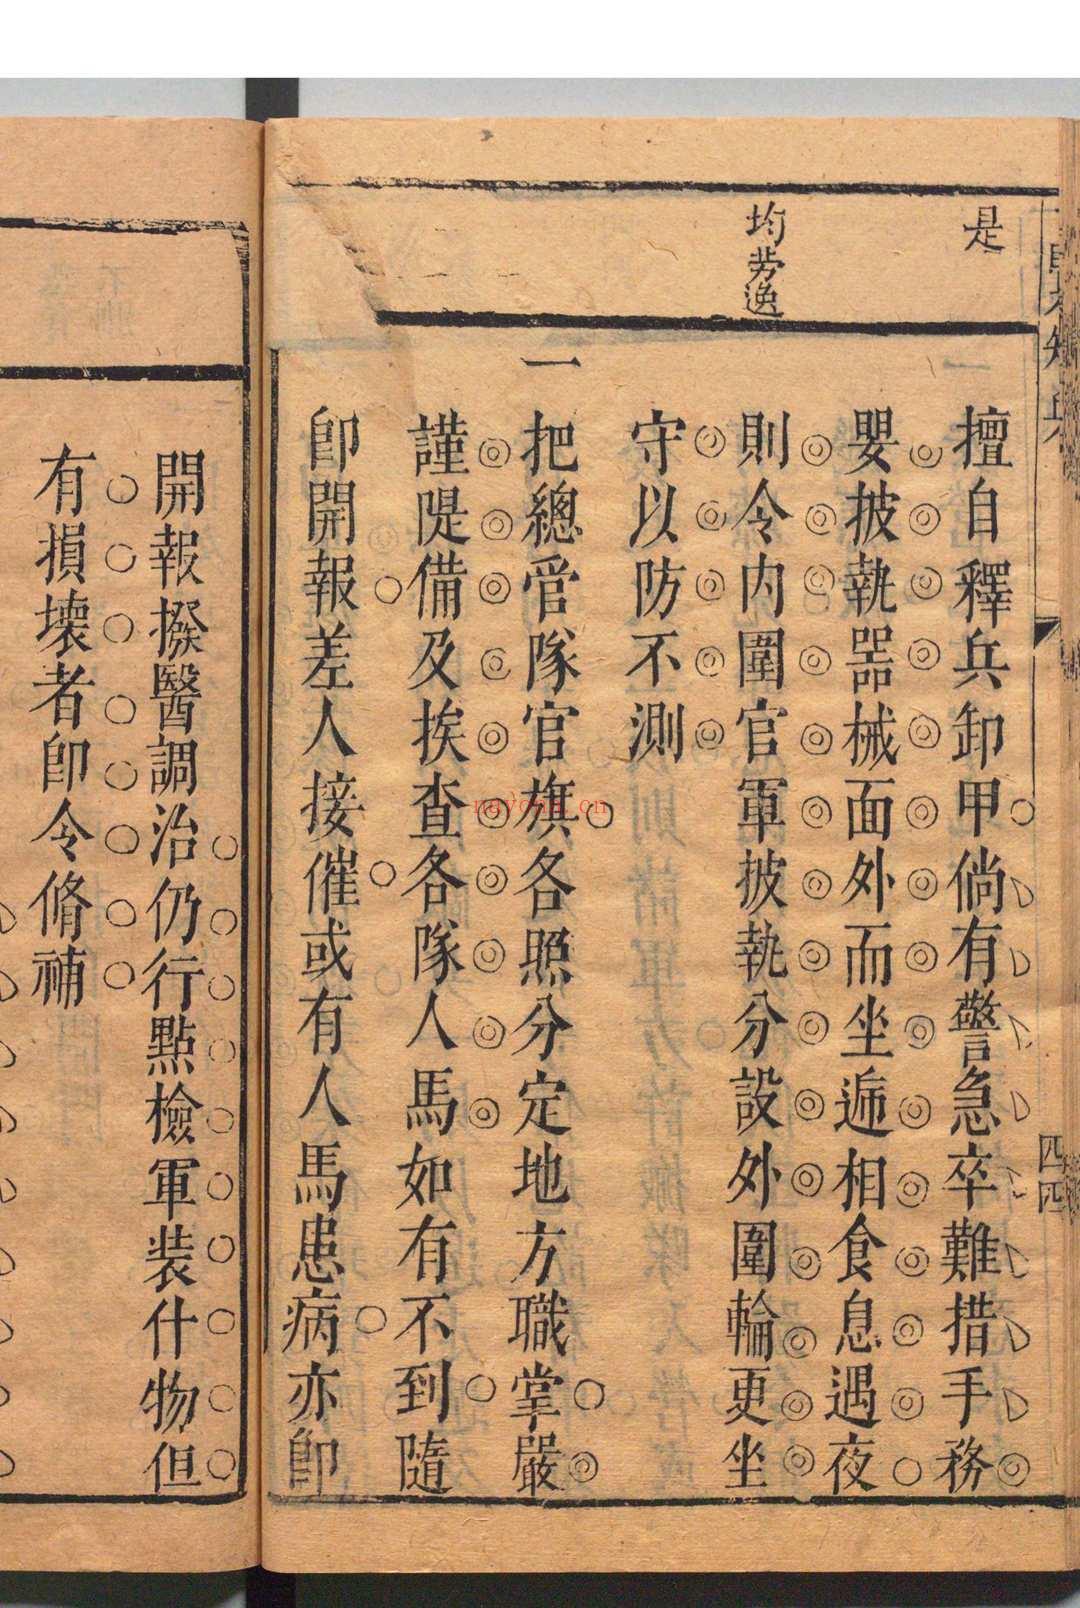 是
均勞逸
擅自釋兵卸甲倘有警急卒難措手務
嬰披執器械面外而坐逓相食息遇夜
則令内圍官軍披執分設外圍輪更坐
守以防不測
一把總管隊官旗各照分定地方職掌嚴
謹隄備及挨查各隊人馬如有不到隨
即開報差人接催或有人馬患病亦即
開報撥醫調治仍行點檢軍装什物但
有損壞者即令脩補
四四